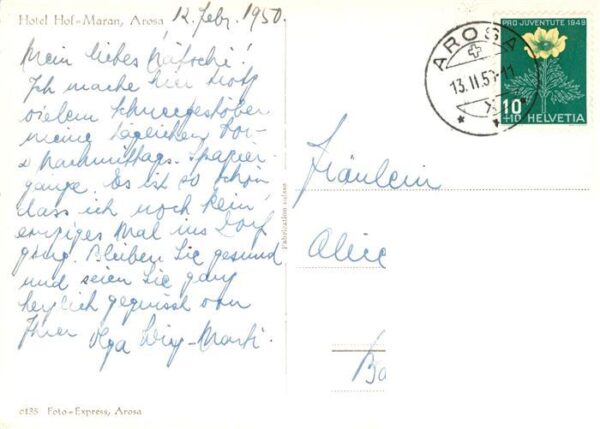 Hotel Hof-Maran, Arosa
12. Febr. 1950.
Mein liebes
Ich mache hier trotz
vielem Schneegestöber
meine täglichen Vor-
& Nachmittags-Spazier-
gänge. Es ist so schön
dass ich noch kein
einziges Mal ins Dorf
ging. Bleiben Sie gesund
und seien Sie ganz
herzlich gegrüsst von
Ihrer Olga
6135 Foto-Express, Arosa
Fabrication suisse
PRO JUVENTUTE 1949
10
+10 HELVETIA
AROSA
13.II.50-11
Fräulein
Alice
Ba